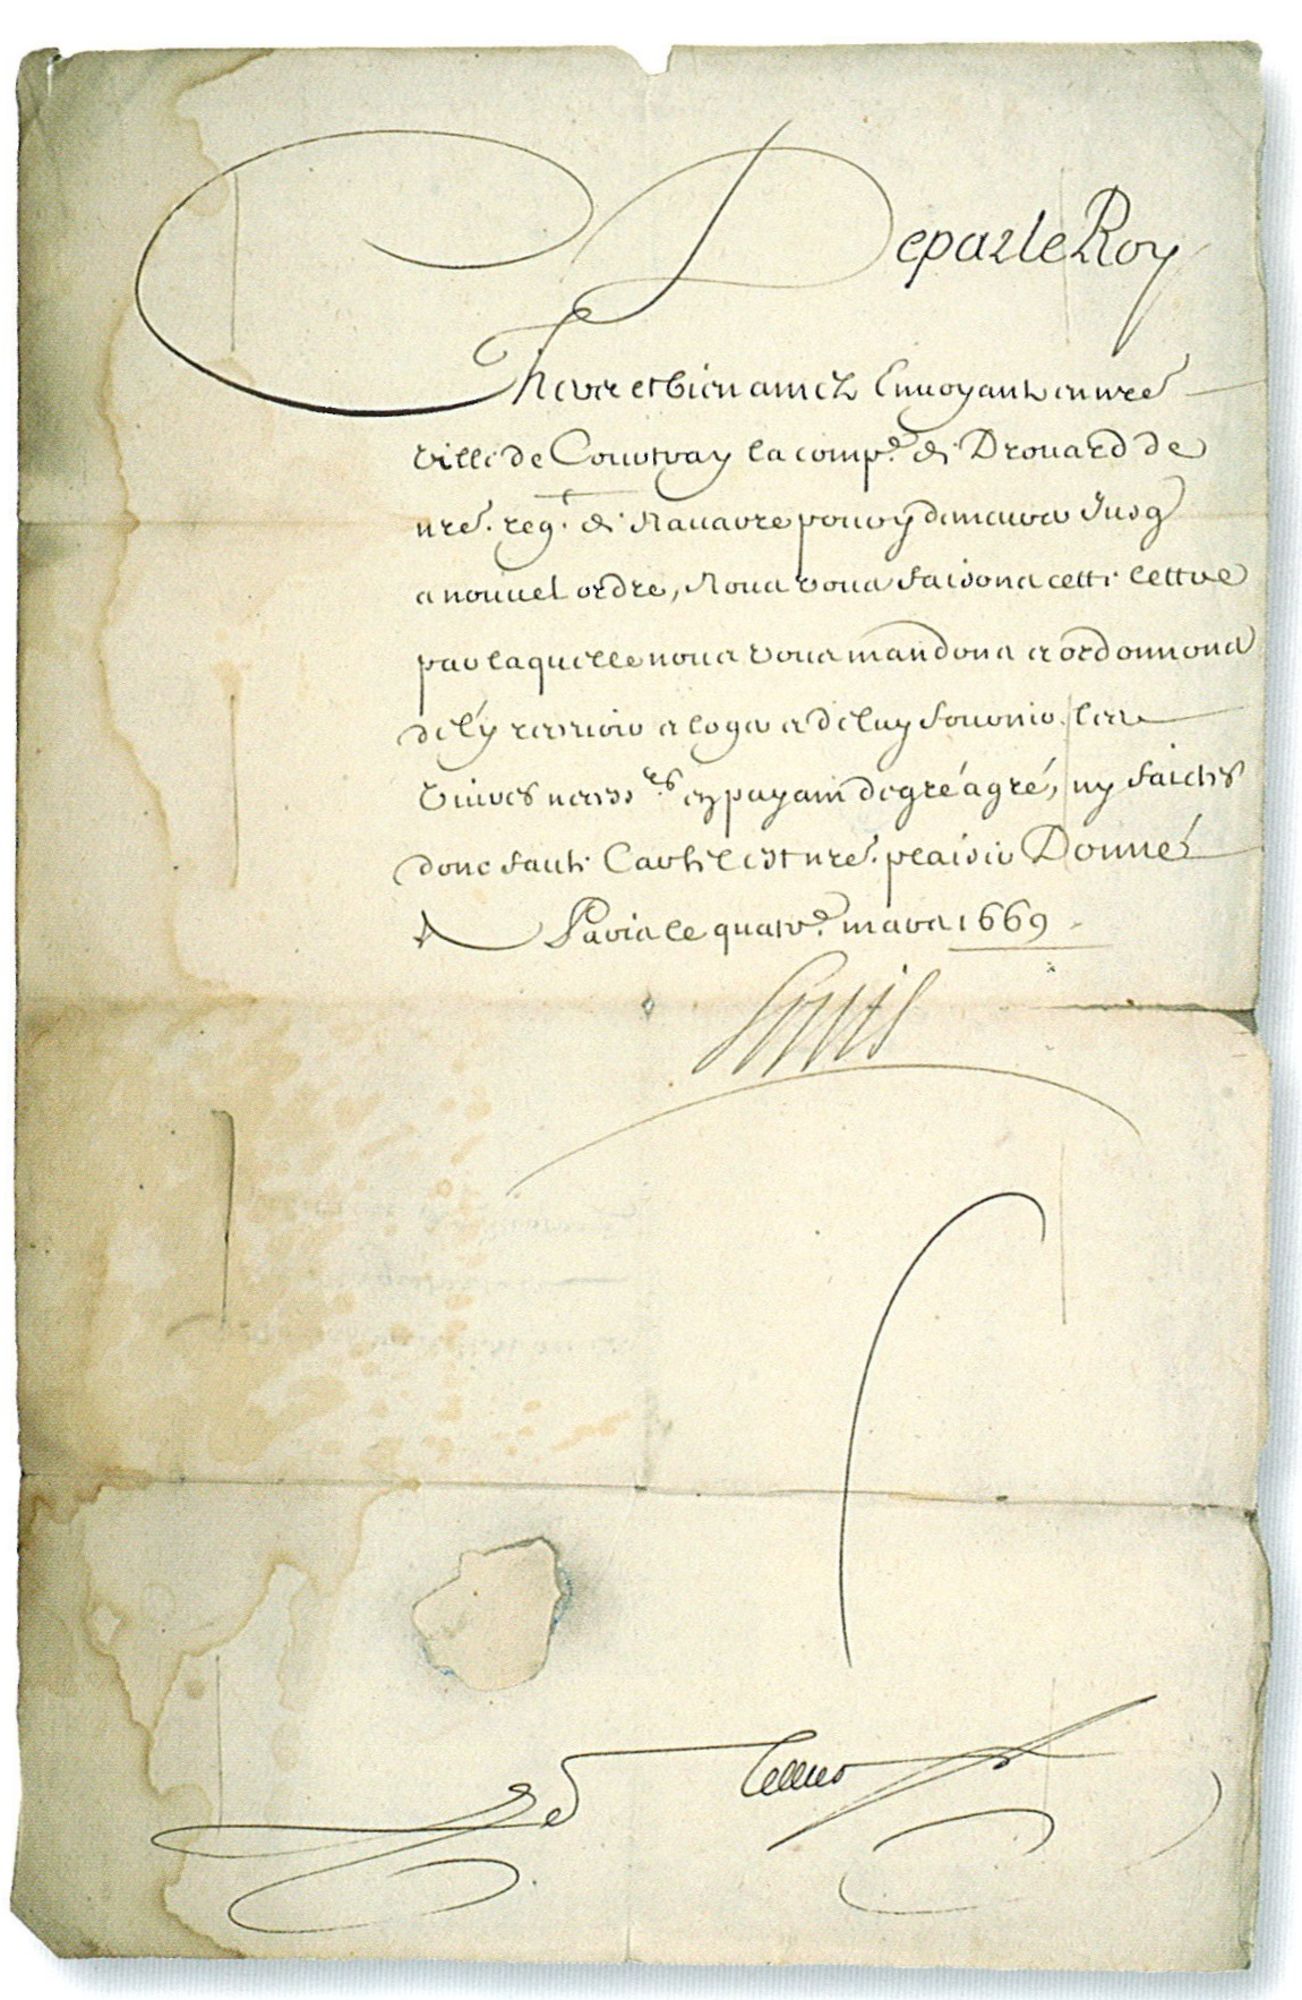 De par le Roy
Chers et bien amez Envoyant en nre
ville de Courtray la compe. de Drouard de
nre. regt. de Navarre pour y demeurer Jusq
a nouvel ordre, Nous vous faisons cette lettre
par laquelle nous vous mandons et ordonnons
de l'y recevoir et loger et de luy fournir les
vivres necess.res en payant de gré à gré, ny faictes
donc faute Car tel est nre. plaisir Donné
A Paris le quatre. mars 1669
Louis
Le Tellier